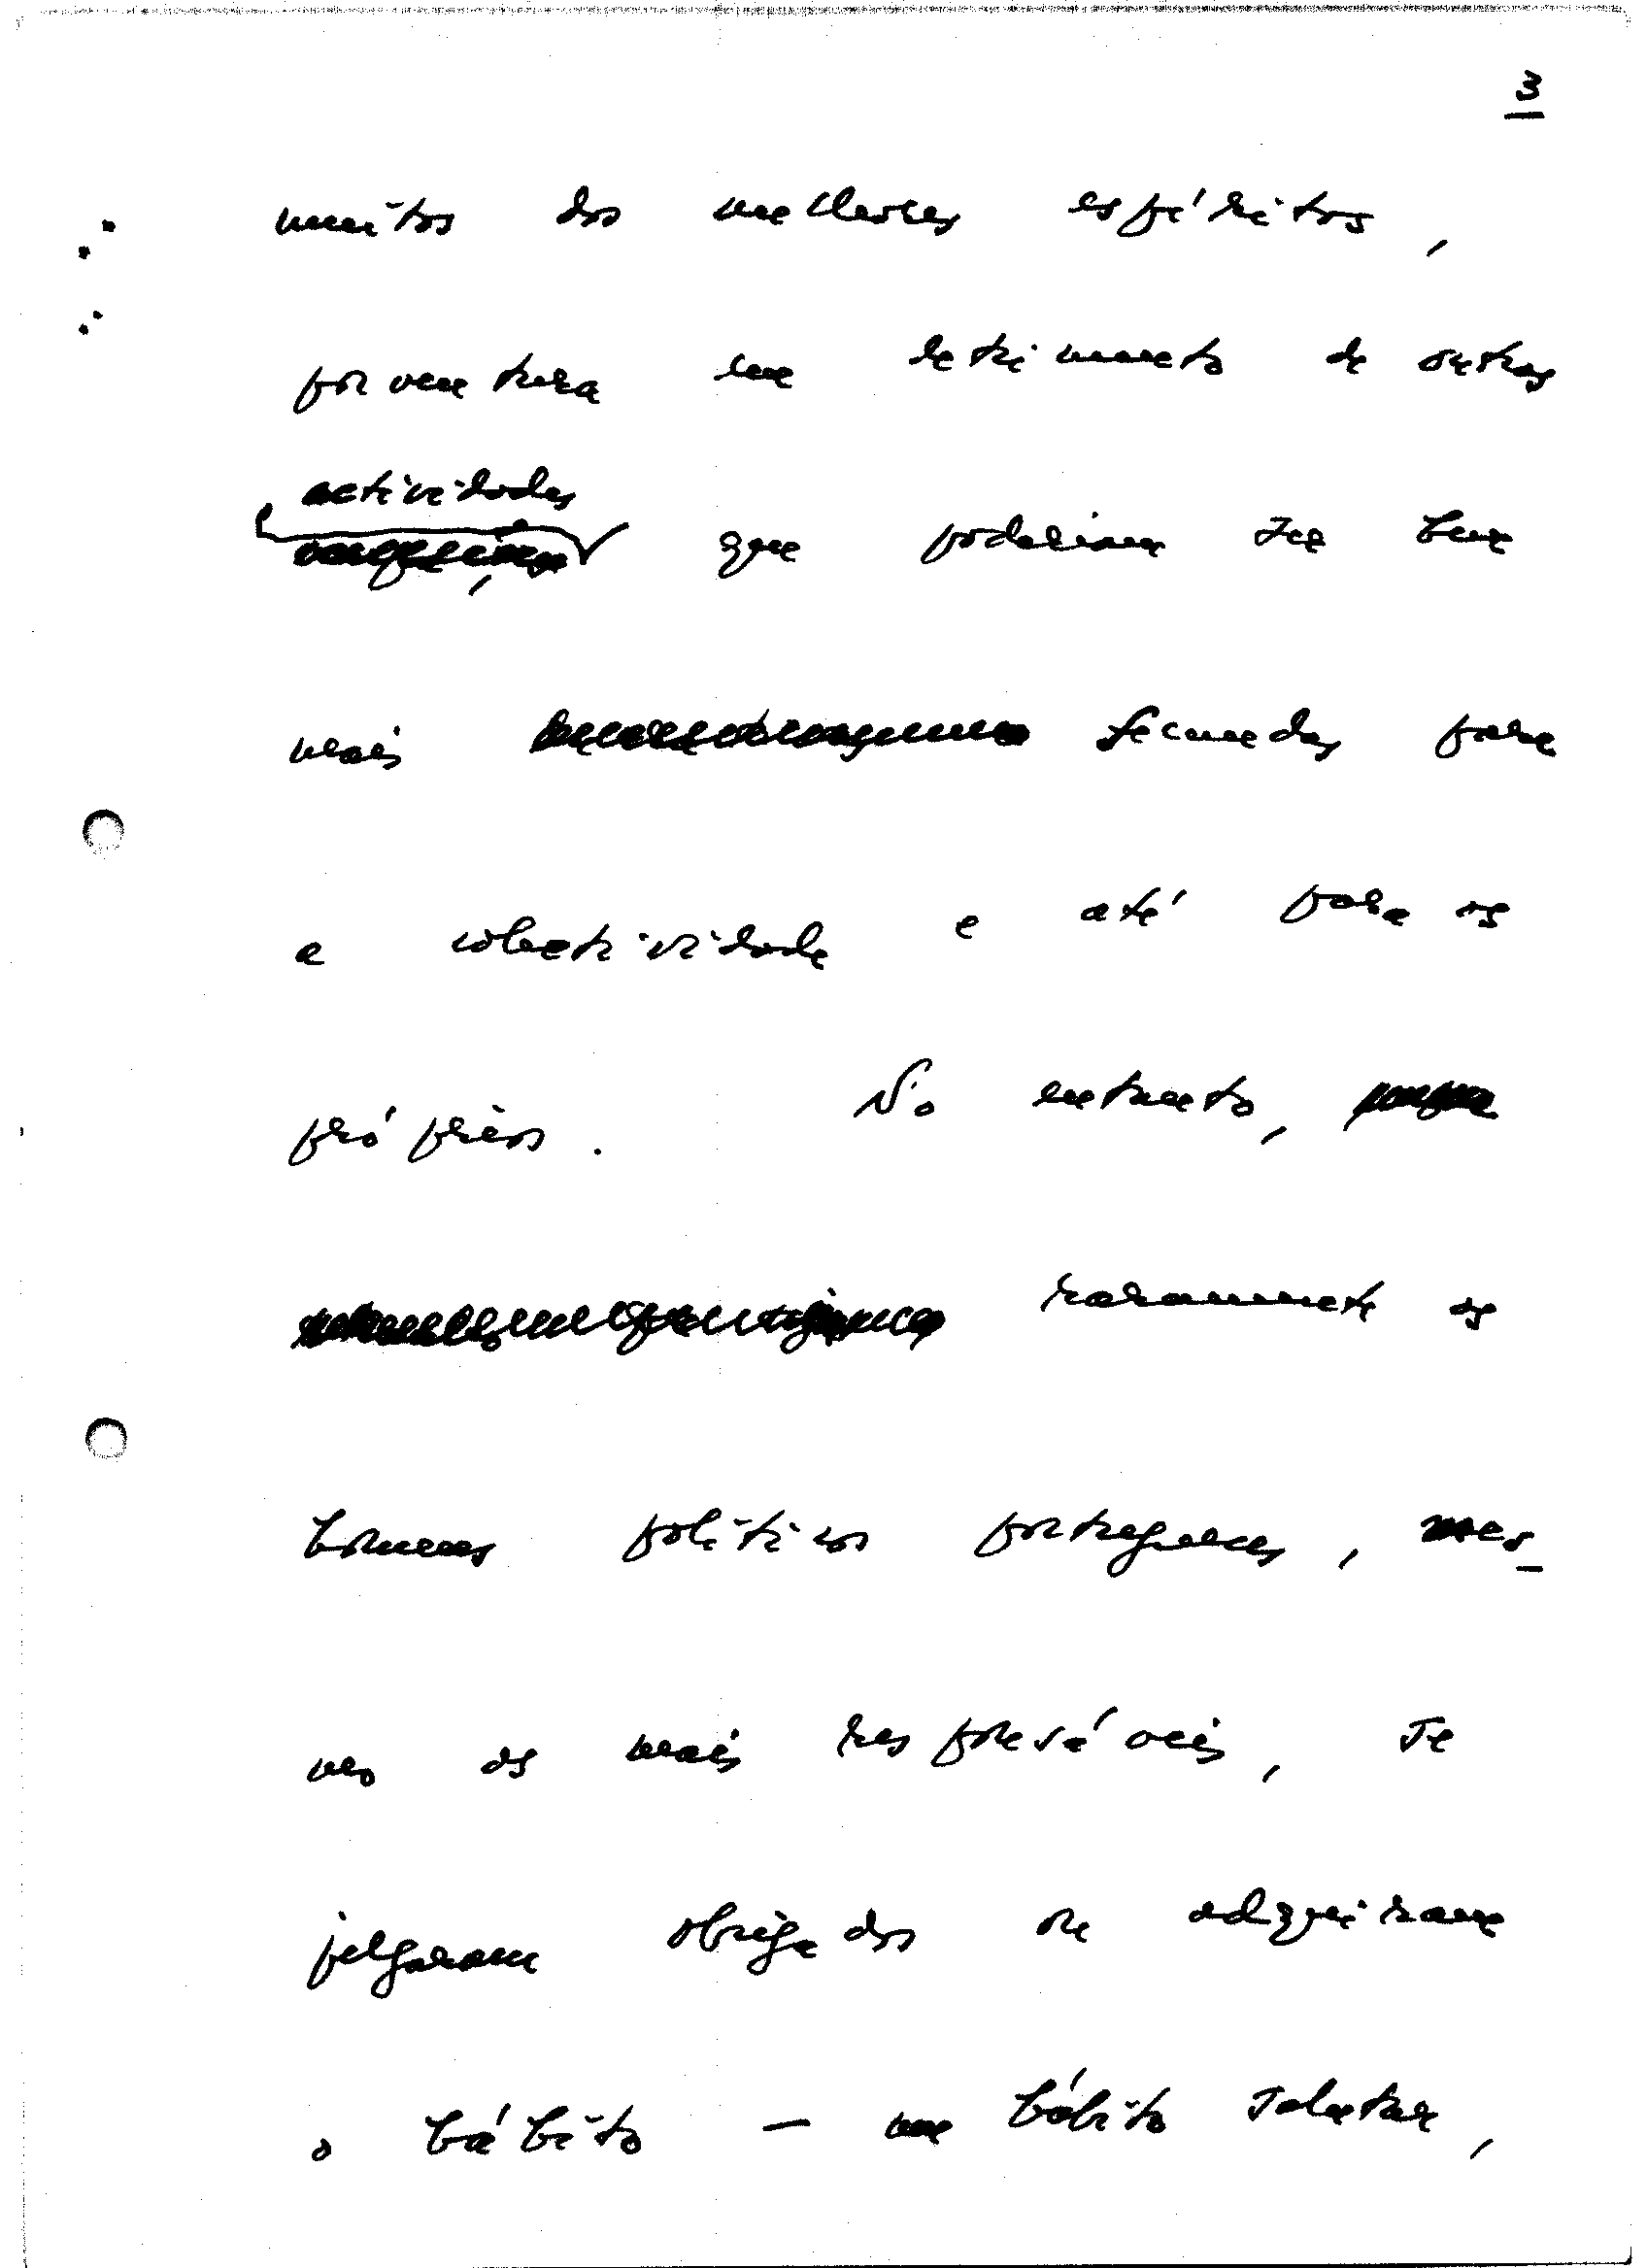 3
muitos dos melhores espíritos,
porventura em detrimento de outras
actividades
que poderiam ser bem
mais fecundas para
a colectividade e até para os
próprios. No entanto,
raramente os
homens políticos portugueses, mes-
mo os mais responsáveis, se
julgaram obrigados ou adquiriram
o hábito — um hábito salutar,